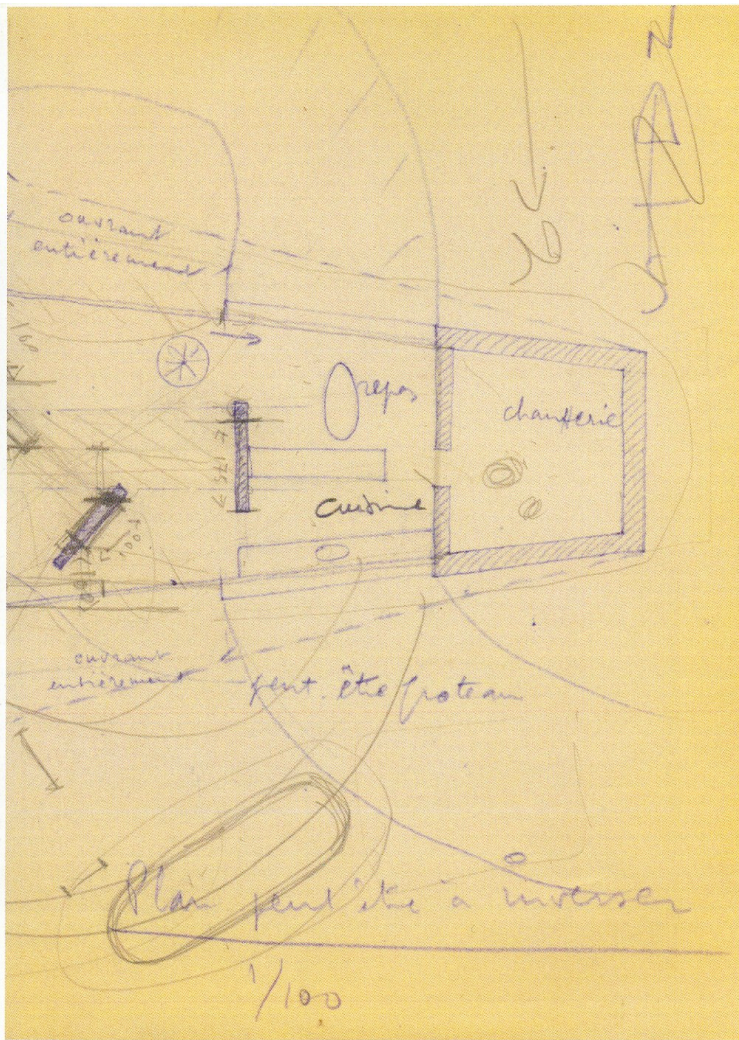 N
ouvrant
entièrement
160
repas
chaufferie
175
cuisine
100
ouvrant
entièrement
peut-être poteau
Plan peut être à inverser
1/100